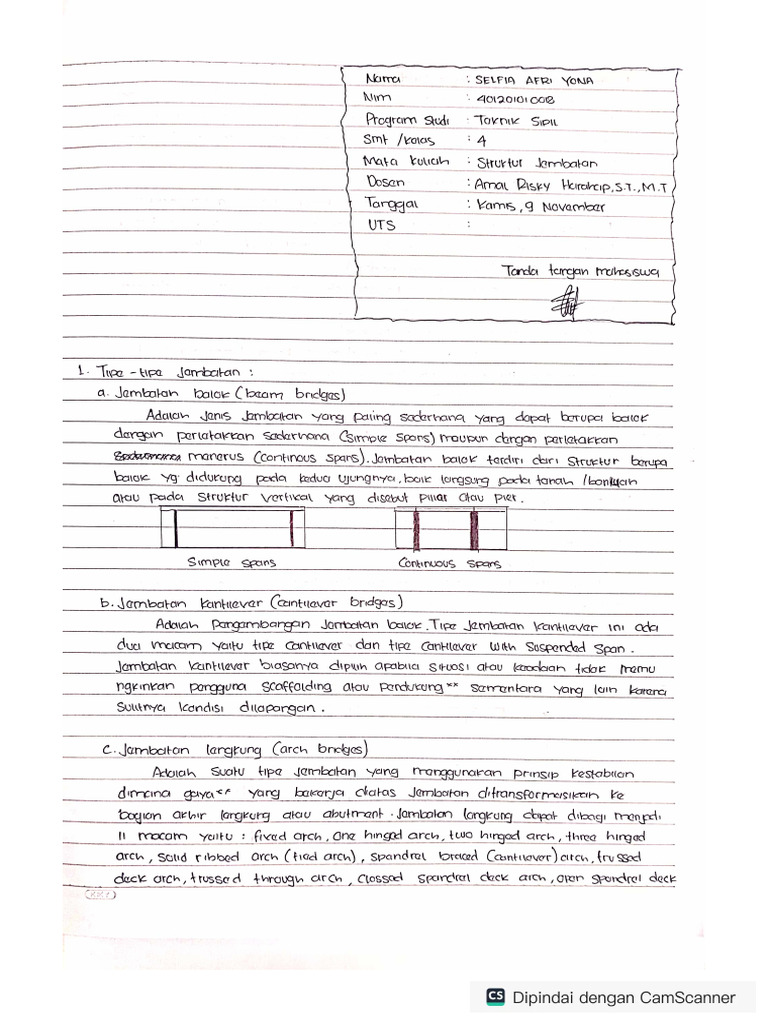 Nama : SELFIA AFRI YONA
Nim : 40120101008
Program Studi : Teknik Sipil
Smt /kelas : 4
Mata kuliah : Struktur Jembatan
Dosen : Amal Risky Harahap, S.T., M.T
Tanggal : Kamis, 9 November
UTS :
Tanda tangan mahasiswa
1. Tipe - tipe Jembatan :
a. Jembatan balok (beam bridges)
Adalah jenis jembatan yang paling sederhana yang dapat berupa balok
dengan perletakkan sederhana (simple spans) maupun dengan perletakkan
menerus (continous spans). Jembatan balok terdiri dari struktur berupa
balok yg didukung pada kedua ujungnya, baik langsung pada tanah /bantuan
atau pada struktur vertikal yang disebut pilar atau pier.
Simple spans Continuous spans
b. Jembatan kantilever (cantilever bridges)
Adalah pengambangan jembatan balok. Tipe jembatan kantilever ini ada
dua macam yaitu tipe cantilever dan tipe cantilever with suspended span.
Jembatan kantilever biasanya dipilih apabila situasi atau keadaan tidak memu
ngkinkan pengguna scaffolding atau pendukung** sementara yang lain karena
sulitnya kondisi dilapangan.
c. Jembatan langkung (arch bridges)
Adalah suatu tipe jembatan yang menggunakan prinsip kestabilan
dimana gaya** yang bekerja diatas jembatan ditransformasikan ke
bagian akhir langkung atau abutment. Jembatan langkung dapat dibagi menjadi
11 macam yaitu : fixed arch, one hinged arch, two hinged arch, three hinged
arch, solid ribbed arch (tied arch), spandrel braced (cantilever) arch, trussed
deck arch, trussed through arch, clossed spandrel deck arch, open spandrel deck
CS Dipindai dengan CamScanner